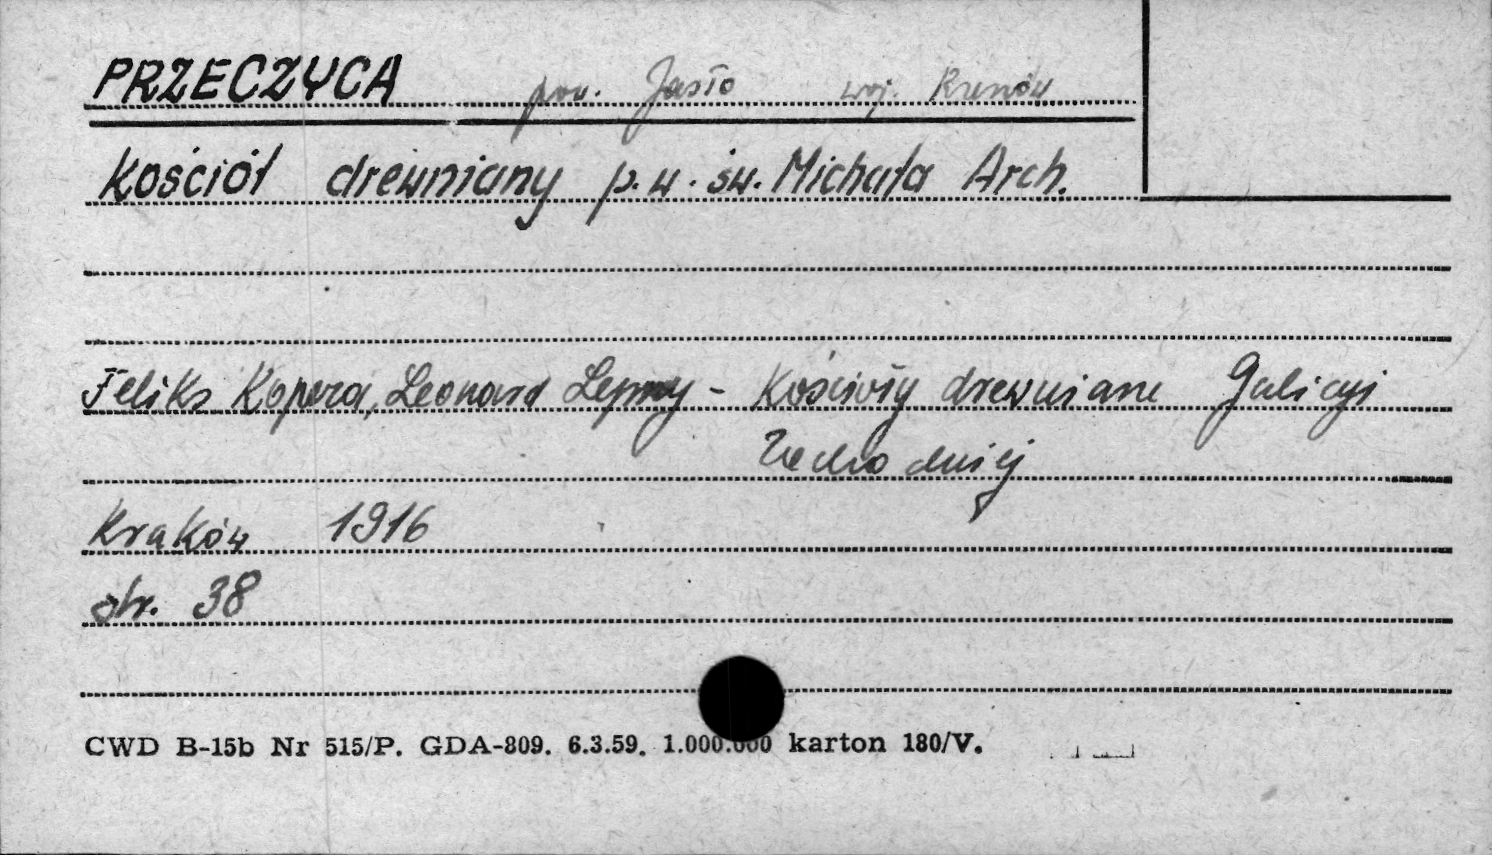 PRZECZYCA pow. Jasło woj. Rzeszów
Kościół drewniany p.w. św. Michała Arch.
Feliks Kopera, Leonard Lepszy - Kościoły drewniane Galicyi
Zachodniej
Kraków 1916
str. 38
CWD B-15b Nr 515/P. GDA-809. 6.3.59. 1.000.000 karton 180/V.